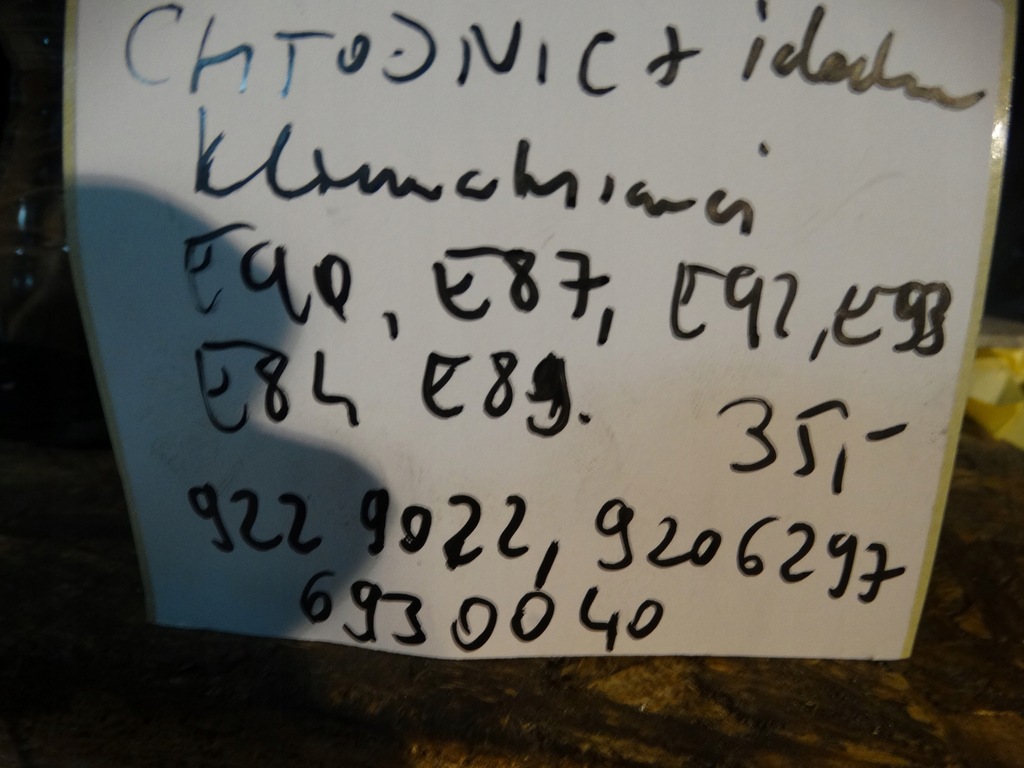 CHŁODNICA
klimatyzacji
E90, E87, E92, E93
E84 E89.
35,-
9229022, 9206297
6930040